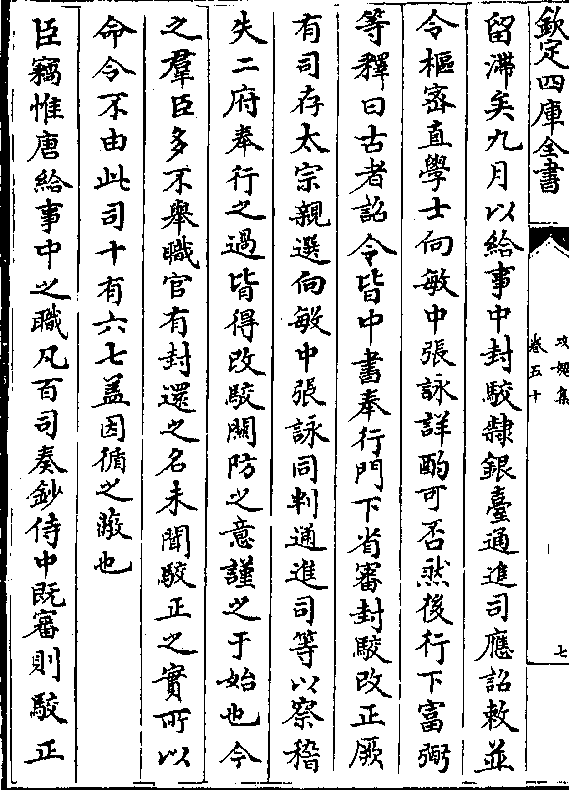 欽定四庫全書
攻媿集
卷五十
七
留滯矣九月以給事中封駮隸銀臺通進司應詔敕並
令樞密直學士向敏中張詠詳酌可否然後行下富弼
等釋曰古者詔令皆中書奉行門下省審封駮改正厥
有司存太宗親選向敏中張詠同判通進司等以察稽
失二府奉行之過皆得改駮關防之意謹之于始也今
之羣臣多不舉職官有封還之名未聞駮正之實所以
命令不由此司十有六七葢因循之蔽也
臣竊惟唐給事中之職凡百司奏鈔侍中既審則駮正